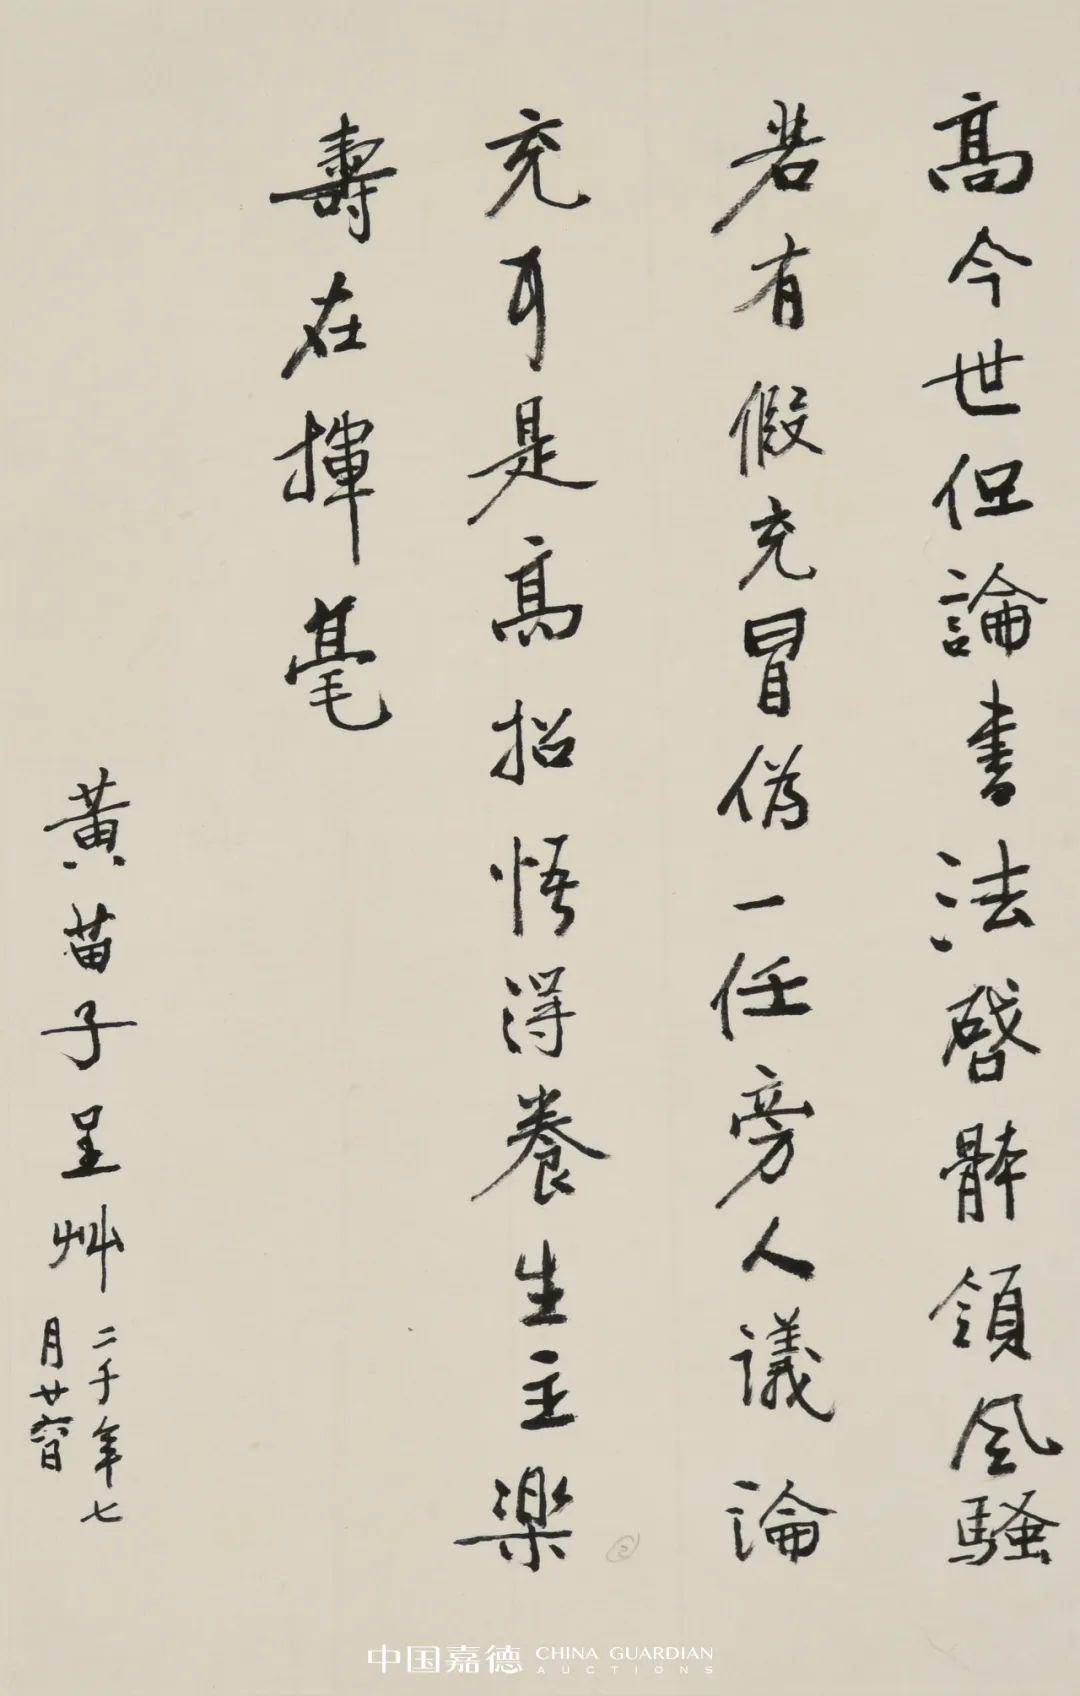 高今世但論書法啓體領風騷
若有假充冒偽一任旁人議論
充耳是高招悟得養生主樂
壽在揮毫
黃苗子呈艸
二千年七
月廿
中国嘉德 CHINA GUARDIAN
AUCTIONS